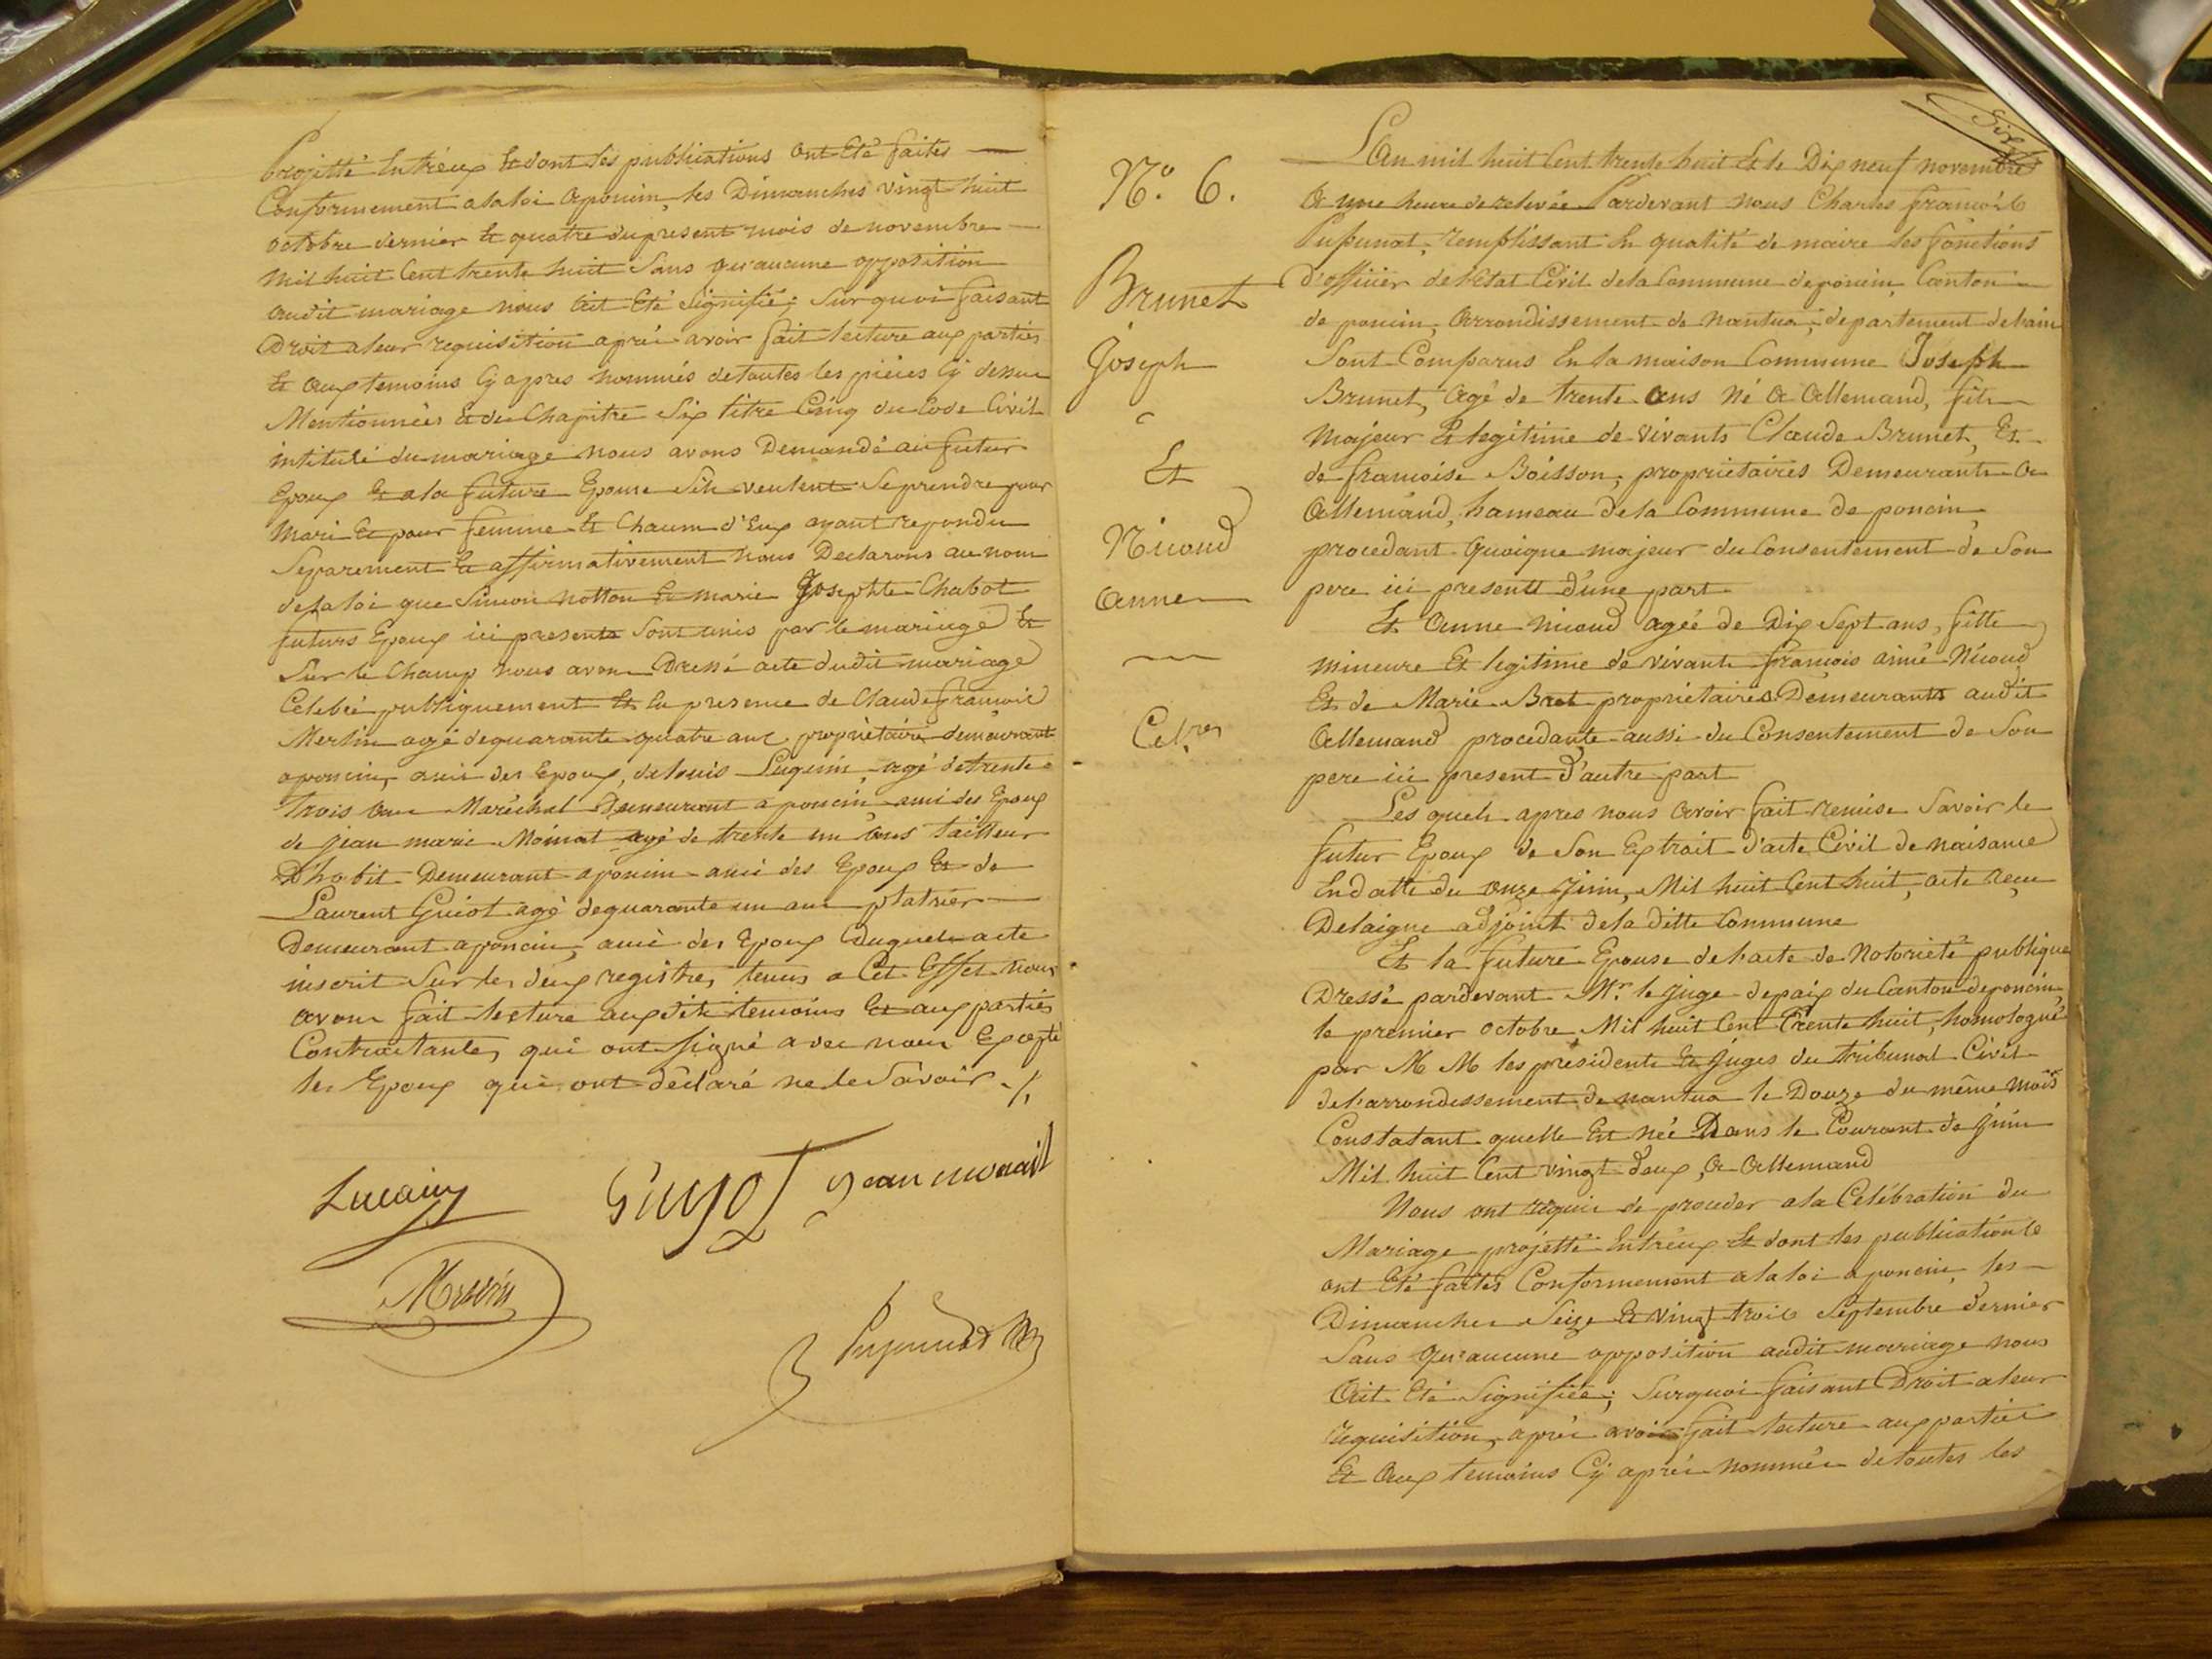 projetté Entréux Et dont les publications ont Eté faites
Conformement a la loi a poncin, les Dimanches vingt huit
octobre dernier Et quatre du present mois de novembre
mil huit Cent trente huit Sans qu'aucune opposition
audit mariage nous Ait Eté Signifiée; Sur quoi faisant
Droit a leur requisition aprés avoir fait lecture aux parties
Et aux temoins Cy apres nommés de toutes les piéces Cy dessus
Mentionnées Et du Chapitre Six titre Cinq du Code Civil
intitulé du mariage nous avons Demandé au futur
Epoux Et a la future Epouse S'ils veulent Se prendre pour
Mari Et pour femme Et Chacun d'Eux ayant repondu
Separement Et affirmativement nous Declarons au nom
de la loi que Simon notton Et marie Josephte Chabot
futurs Epoux ici presents Sont unis par le mariage Et
Sur le Champ nous avons Dressé acte dudit mariage
Celebré publiquement Et En presence de Claude francois
Merlin agé de quarante quatre ans propriétaire demeurant
a poncin, ami des Epoux, de louis Lugerin agé de trente
trois ans Maréchal Demeurant a poncin ami des Epoux
de jean marie Moinat agé de trente un ans tailleur
D'habit Demeurant a poncin ami des Epoux Et de
Laurent Guiot agé de quarante un ans platrier
Demeurant a poncin, ami des Epoux Duquel acte
inscrit Sur les deux registres tenus a Cet Effet nous
avons fait lecture auxdits temoins Et aux parties
Contractantes, qui ont Signé avec nous Excepté
les Epoux qui ont déclaré ne le Savoir ./.
Guyot Jean
Merlin
N.o 6.
Brunet
Joseph
Et
Nicoud
Anne
Cel.res
L'an mil huit Cent trente huit Et le Dix neuf novembre
A une heure de relevée Pardevant nous Charles francois
remplissant En qualité de maire les fonctions
D'officier de l'Etat Civil de la Commune de poncin, Canton
de poncin, Arrondissement de nantua, departement de l'ain
Sont Comparus En la maison Commune Joseph
Brunet, Agé de trente Ans Né A Allemand, fils
Majeur Et legitime de vivants Claude Brunet, Et
de francoise Boisson, proprietaires Demeurants A
Allemand, hameau de la Commune de poncin,
procedant quoique majeur du Consentement de Son
pere ici present D'une part
Et Anne nicoud agée de Dix Sept ans, fille
mineure Et legitime de vivants francois aimé Nicoud
Et de Marie Bret propriétaires Demeurants audit
Allemand procedante aussi du Consentement de Son
pere ici present D'autre part
Les quels apres nous Avoir fait remise Savoir le
futur Epoux de Son Extrait d'acte Civil de naisance
En datte du onze Juin, Mil huit Cent huit, acte reçu
Delaigue adjoint de la ditte Commune
Et la future Epouse de l'acte de Notorieté publique
Dressé pardevant Mr. le juge de paix du Canton de poncin
le premier octobre Mil huit Cent trente huit, homologué
par M M les présidents Et juges du tribunal Civil
de l'arrondissement de nantua le Douze du même mois
Constatant quelle Est née Dans le Courant de Juin
Mil huit Cent vingt deux, A Allemand
Nous ont requis de proceder a la Celébration du
Mariage projetté Entréux Et dont les publications
ont Eté faites Conformement a la loi a poncin, les
Dimanches Seize Et vingt trois Septembre dernier
Sans qu'aucune opposition audit mariage nous
Ait Eté Signifiée; Surquoi faisant Droit a leur
requisition, aprés avoir fait lecture aux parties
Et Aux temoins Cy aprés nommés de toutes les